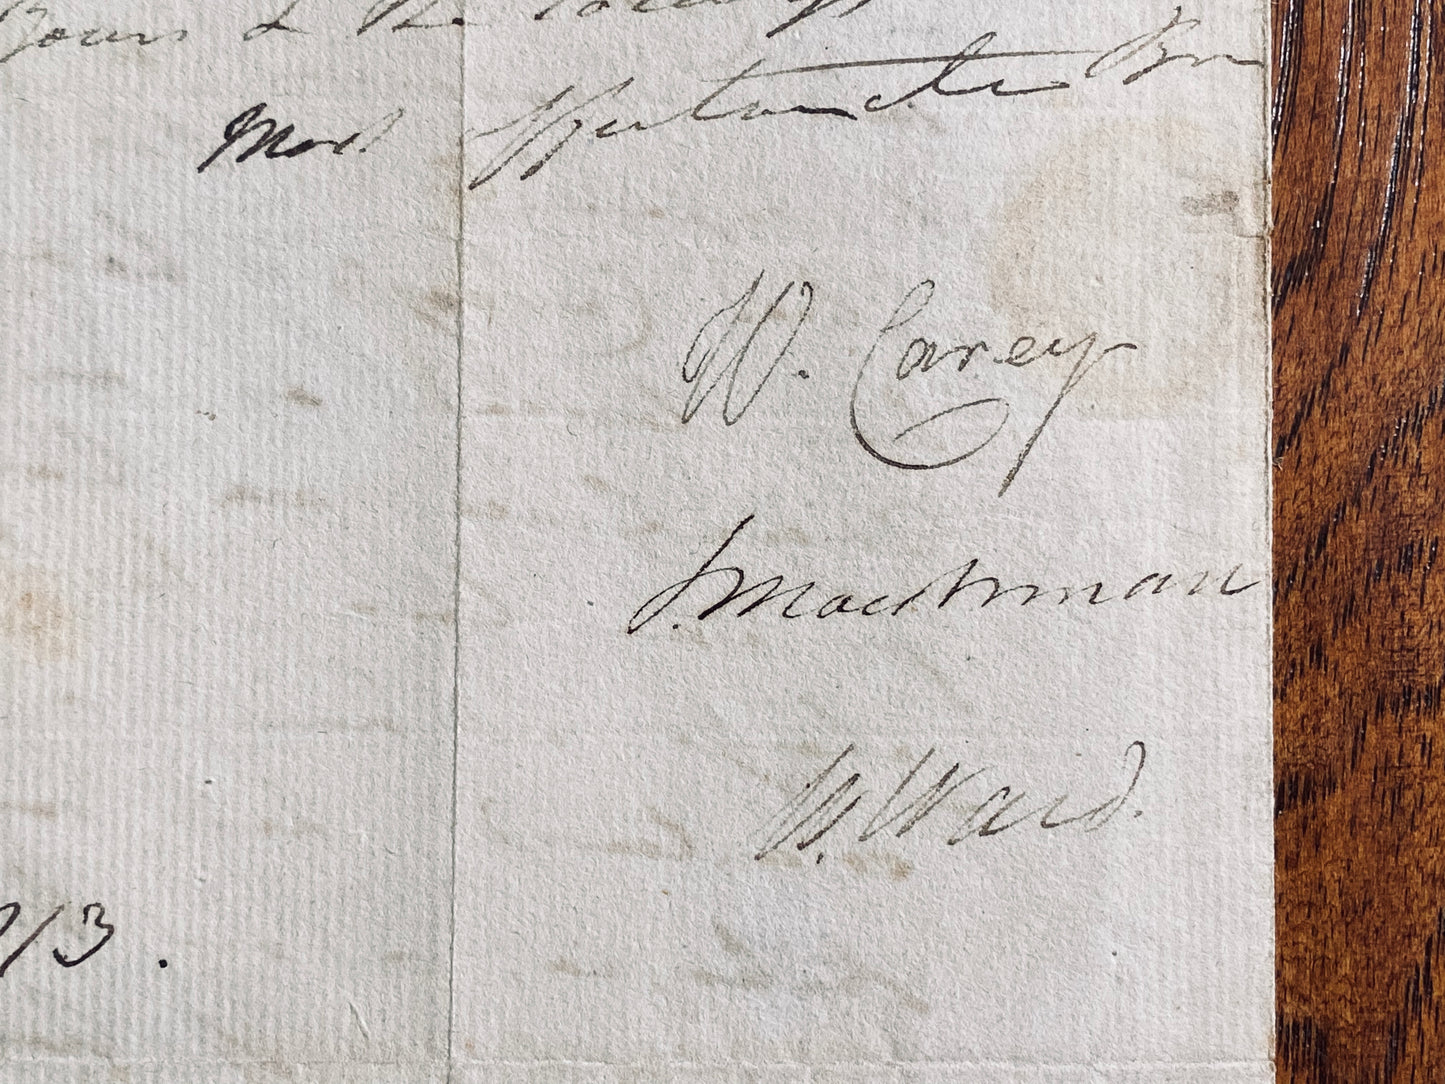 Yours
Most Affectionate
W. Carey
J. Marshman
W. Ward.
13.